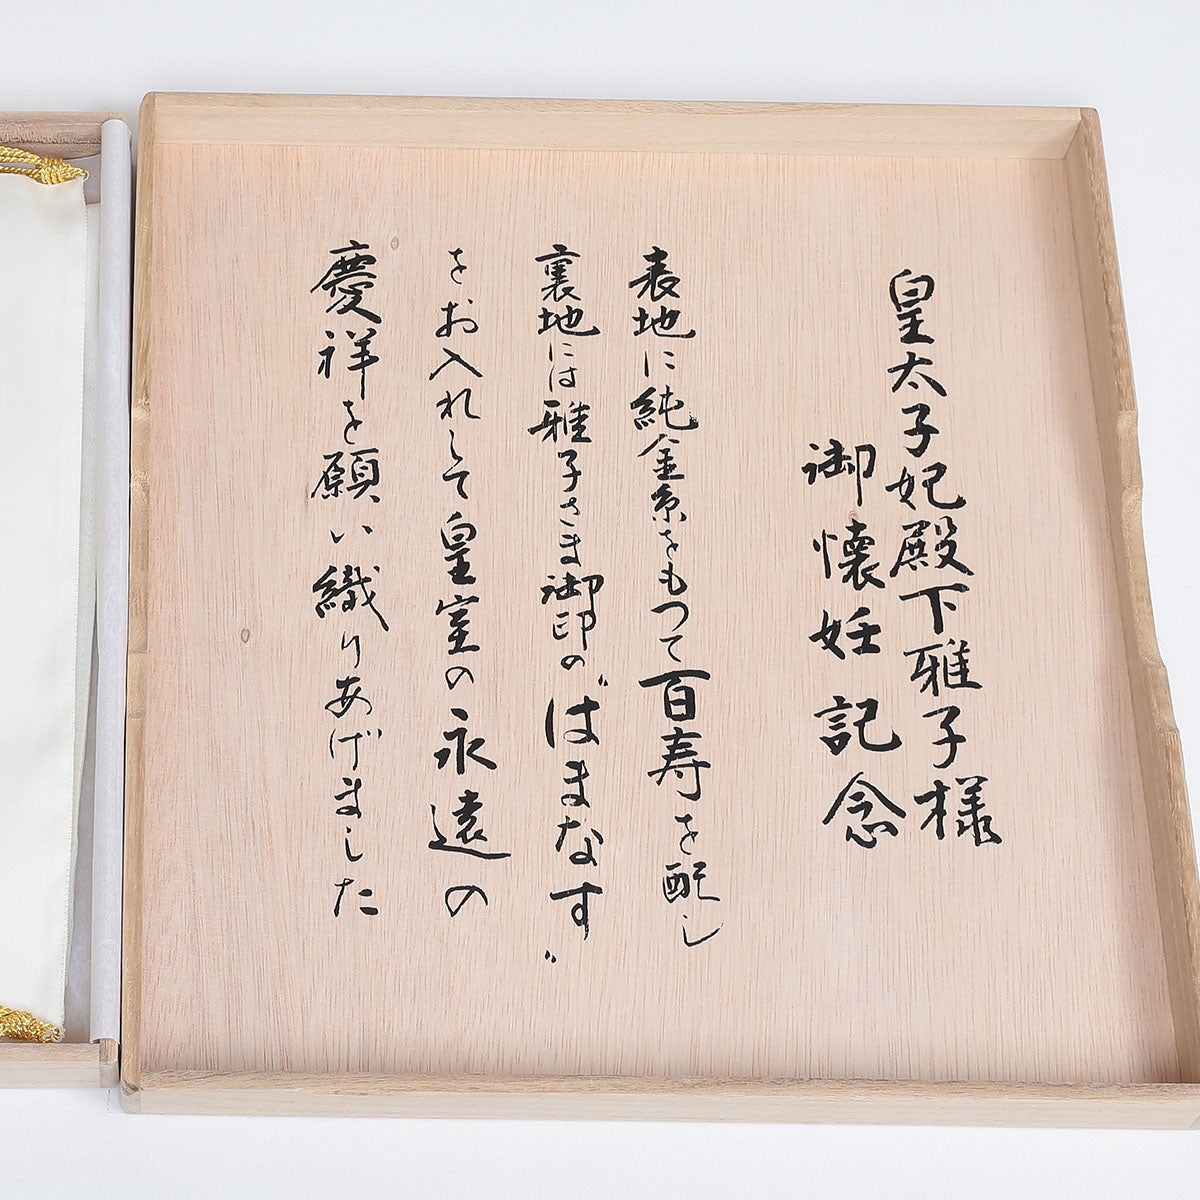 皇太子妃殿下雅子様
御懐妊記念
表地に純金糸をもつて百寿を配し
裏地には雅子さま御印の"はまなす"
をお入れして皇室の永遠の
慶祥を願い織りあげました